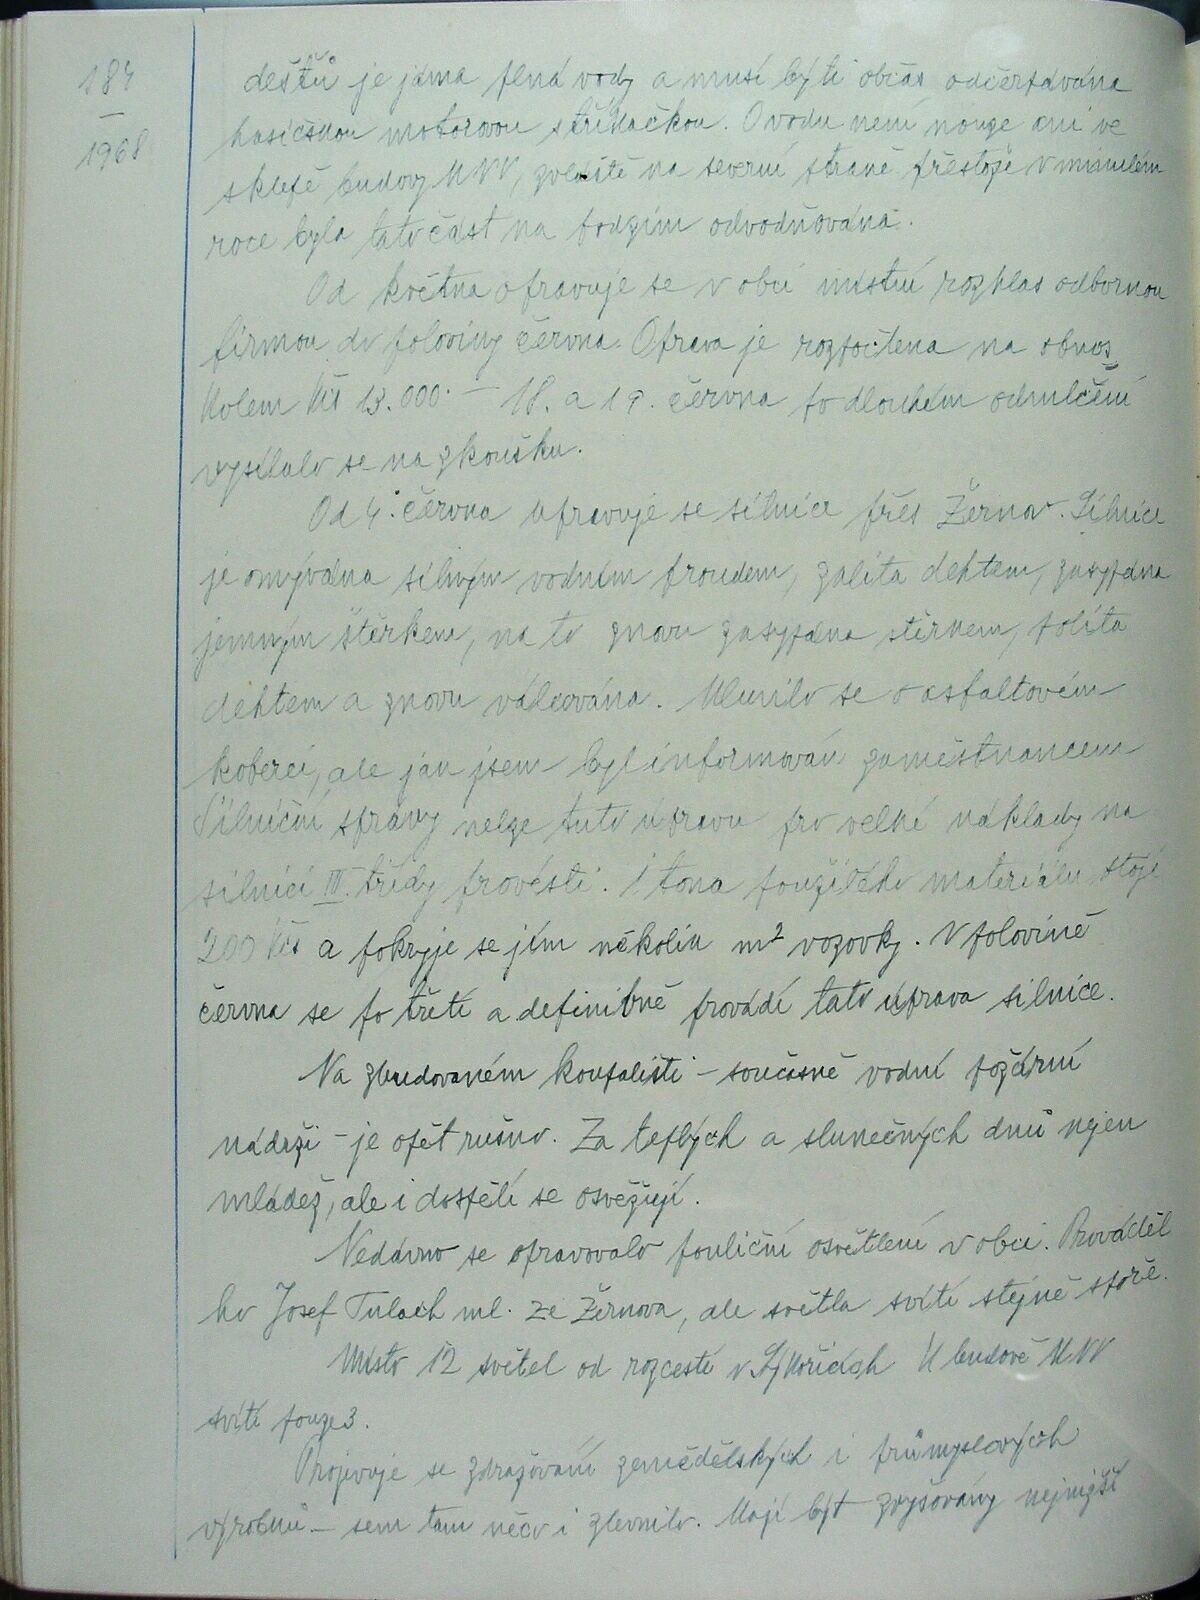 184
—
1968
dešťů je jáma plná vody a musí býti občas odčerpávána
hasičskou motorovou stříkačkou. O vodu není nouze ani ve
sklepě budovy MNV, zvláště na severní straně přestože v minulém
roce byla tato část na podzim odvodňována.
Od května opravuje se v obci místní rozhlas odbornou
firmou do poloviny června. Oprava je rozpočtena na obnos
kolem Kčs 13.000.— 18. a 19. června po dlouhém odmlčení
vysílalo se na zkoušku.
Od 4. června upravuje se silnice přes Žernov. Silnice
je omývána silným vodním proudem, zalita dehtem, zasypána
jemným štěrkem, na to znovu zasypána štěrkem, polita
dehtem a znovu válcována. Mluvilo se o asfaltovém
koberci, ale jak jsem byl informován zaměstnancem
Silniční správy nelze tuto úpravu pro velké náklady na
silnici III. třídy provésti. 1 tona použitého materiálu stojí
200 Kčs a pokryje se jím několik m² vozovky. V polovině
června se po třetí a definitivně provádí tato úprava silnice.
Na zbudovaném koupališti – současně vodní požární
nádrži – je opět rušno. Za teplých a slunečných dnů nejen
mládež, ale i dospělí se osvěžují.
Nedávno se opravovalo pouliční osvětlení v obci. Prováděl
ho Josef Tulach ml. ze Žernova, ale světla svítí stejně spoře.
Místo 12 světel od rozcestí v Sýkořicích k budově MNV
svítí pouze 3.
Projevuje se zdražování zemědělských i průmyslových
výrobků – sem tam něco i zlevnilo. Mají být zvyšovány nejnižší